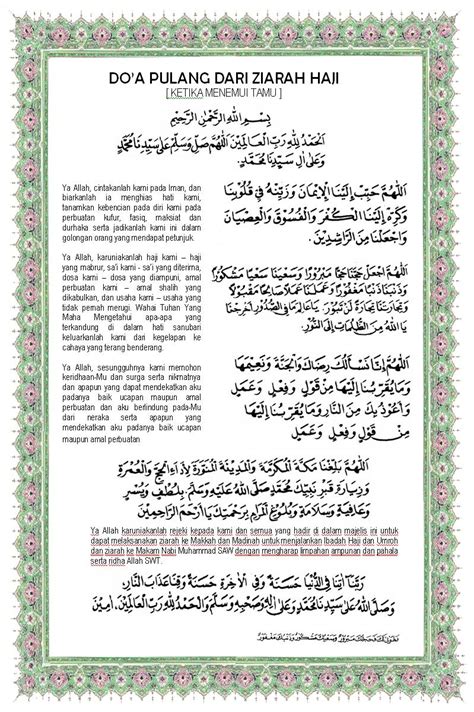 DO'A PULANG DARI ZIARAH HAJI
[ KETIKA MENEMUI TAMU ]
بِسْمِ اللهِ الرَّحْمٰنِ الرَّحِيْمِ
اَلْحَمْدُ لِلّٰهِ رَبِّ الْعَالَمِيْنَ اَللّٰهُمَّ صَلِّ وَسَلِّمْ عَلٰى سَيِّدِنَا مُحَمَّدٍ
وَعَلٰى اٰلِ سَيِّدِنَا مُحَمَّدٍ.
Ya Allah, cintakanlah kami pada Iman, dan
biarkanlah ia menghias hati kami,
tanamkan kebencian pada diri kami pada
perbuatan kufur, fasiq, maksiat dan
durhaka serta jadikanlah kami ini dalam
golongan orang yang mendapat petunjuk.
اَللّٰهُمَّ حَبِّبْ إِلَيْنَا الْإِيْمَانَ وَزَيِّنْهُ فِيْ قُلُوْبِنَا
وَكَرِّهْ إِلَيْنَا الْكُفْرَ وَالْفُسُوْقَ وَالْعِصْيَانَ
وَاجْعَلْنَا مِنَ الرَّاشِدِيْنَ.
Ya Allah, karuniakanlah haji kami – haji
yang mabrur, sa'i kami - sa'i yang diterima,
dosa kami – dosa yang diampuni, amal
perbuatan kami – amal shalih yang
dikabulkan, dan usaha kami – usaha yang
tidak pernah merugi. Wahai Tuhan Yang
Maha Mengetahui apa-apa yang
terkandung di dalam hati sanubari
keluarkanlah kami dari kegelapan ke
cahaya yang terang benderang.
اَللّٰهُمَّ اجْعَلْ حَجَّنَا حَجًّا مَبْرُوْرًا وَسَعْيَنَا سَعْيًا مَشْكُوْرًا
وَذَنْبَنَا ذَنْبًا مَغْفُوْرًا وَعَمَلَنَا عَمَلًا صَالِحًا مَقْبُوْلًا
وَتِجَارَتَنَا تِجَارَةً لَنْ تَبُوْرَ. يَاعَالِمَ مَافِى الصُّدُوْرِ اَخْرِجْنَا
يَااللهُ مِنَ الظُّلُمَاتِ اِلَى النُّوْرِ.
Ya Allah, sesungguhnya kami memohon
keridhaan-Mu dan surga serta nikmatnya
dan apapun yang dapat mendekatkan aku
padanya baik ucapan maupun amal
perbuatan dan aku berlindung pada-Mu
dari neraka serta apapun yang
mendekatkan aku padanya baik ucapan
maupun amal perbuatan
اَللّٰهُمَّ إِنَّا نَسْأَلُكَ رِضَاكَ وَالْجَنَّةَ وَنَعِيْمَهَا
وَمَا يُقَرِّبُنَا إِلَيْهَا مِنْ قَوْلٍ وَفِعْلٍ وَعَمَلٍ
وَاَعُوْذُ بِكَ مِنَ النَّارِ وَمَا يُقَرِّبُنَا إِلَيْهَا
مِنْ قَوْلٍ وَفِعْلٍ وَعَمَلٍ
اَللّٰهُمَّ بَلِّغْنَا مَكَّةَ الْمُكَرَّمَةَ وَالْمَدِيْنَةَ الْمُنَوَّرَةَ لِاَدَاءِ الْحَجِّ وَالْعُمْرَةِ
وَزِيَارَةِ قَبْرِ نَبِيِّكَ مُحَمَّدٍ صَلَّى اللهُ عَلَيْهِ وَسَلَّمَ بِلُطْفٍ وَيُسْرٍ
Ya Allah karuniakanlah rejeki kepada kami dan semua yang hadir di dalam majelis ini untuk
dapat melaksanakan ziarah ke Makkah dan Madinah untuk menjalankan Ibadah Haji dan Umroh
dan ziarah ke Makam Nabi Muhammad SAW dengan mengharap limpahan ampunan dan pahala
serta ridha Allah SWT.
رَبَّنَا اٰتِنَا فِي الدُّنْيَا حَسَنَةً وَفِي الْاٰخِرَةِ حَسَنَةً وَقِنَا عَذَابَ النَّارِ.
وَصَلَّى اللهُ عَلٰى سَيِّدِنَا مُحَمَّدٍ وَعَلٰى اٰلِهِ وَصَحْبِهِ وَسَلَّمَ وَالْحَمْدُ لِلّٰهِ رَبِّ الْعَالَمِيْنَ. اٰمِيْنَ